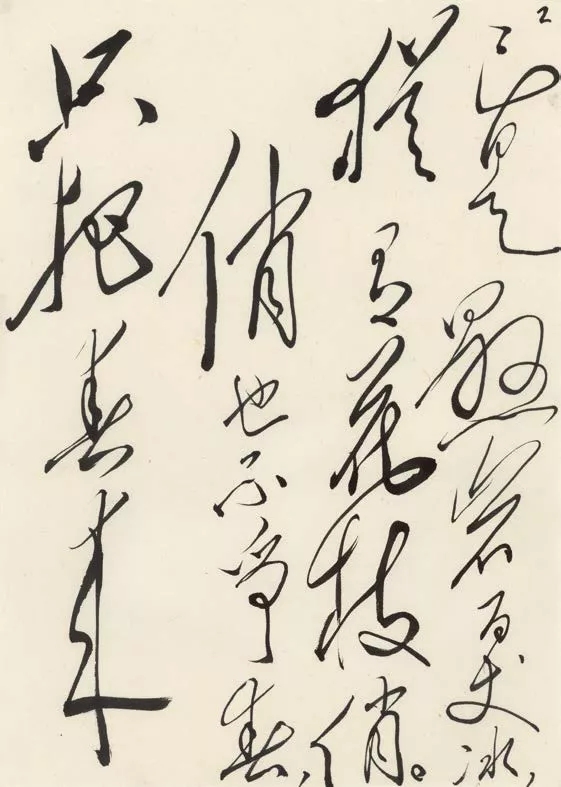 2
已是懸岩百丈冰，
猶有花枝俏。
俏也不争春，
只把春来